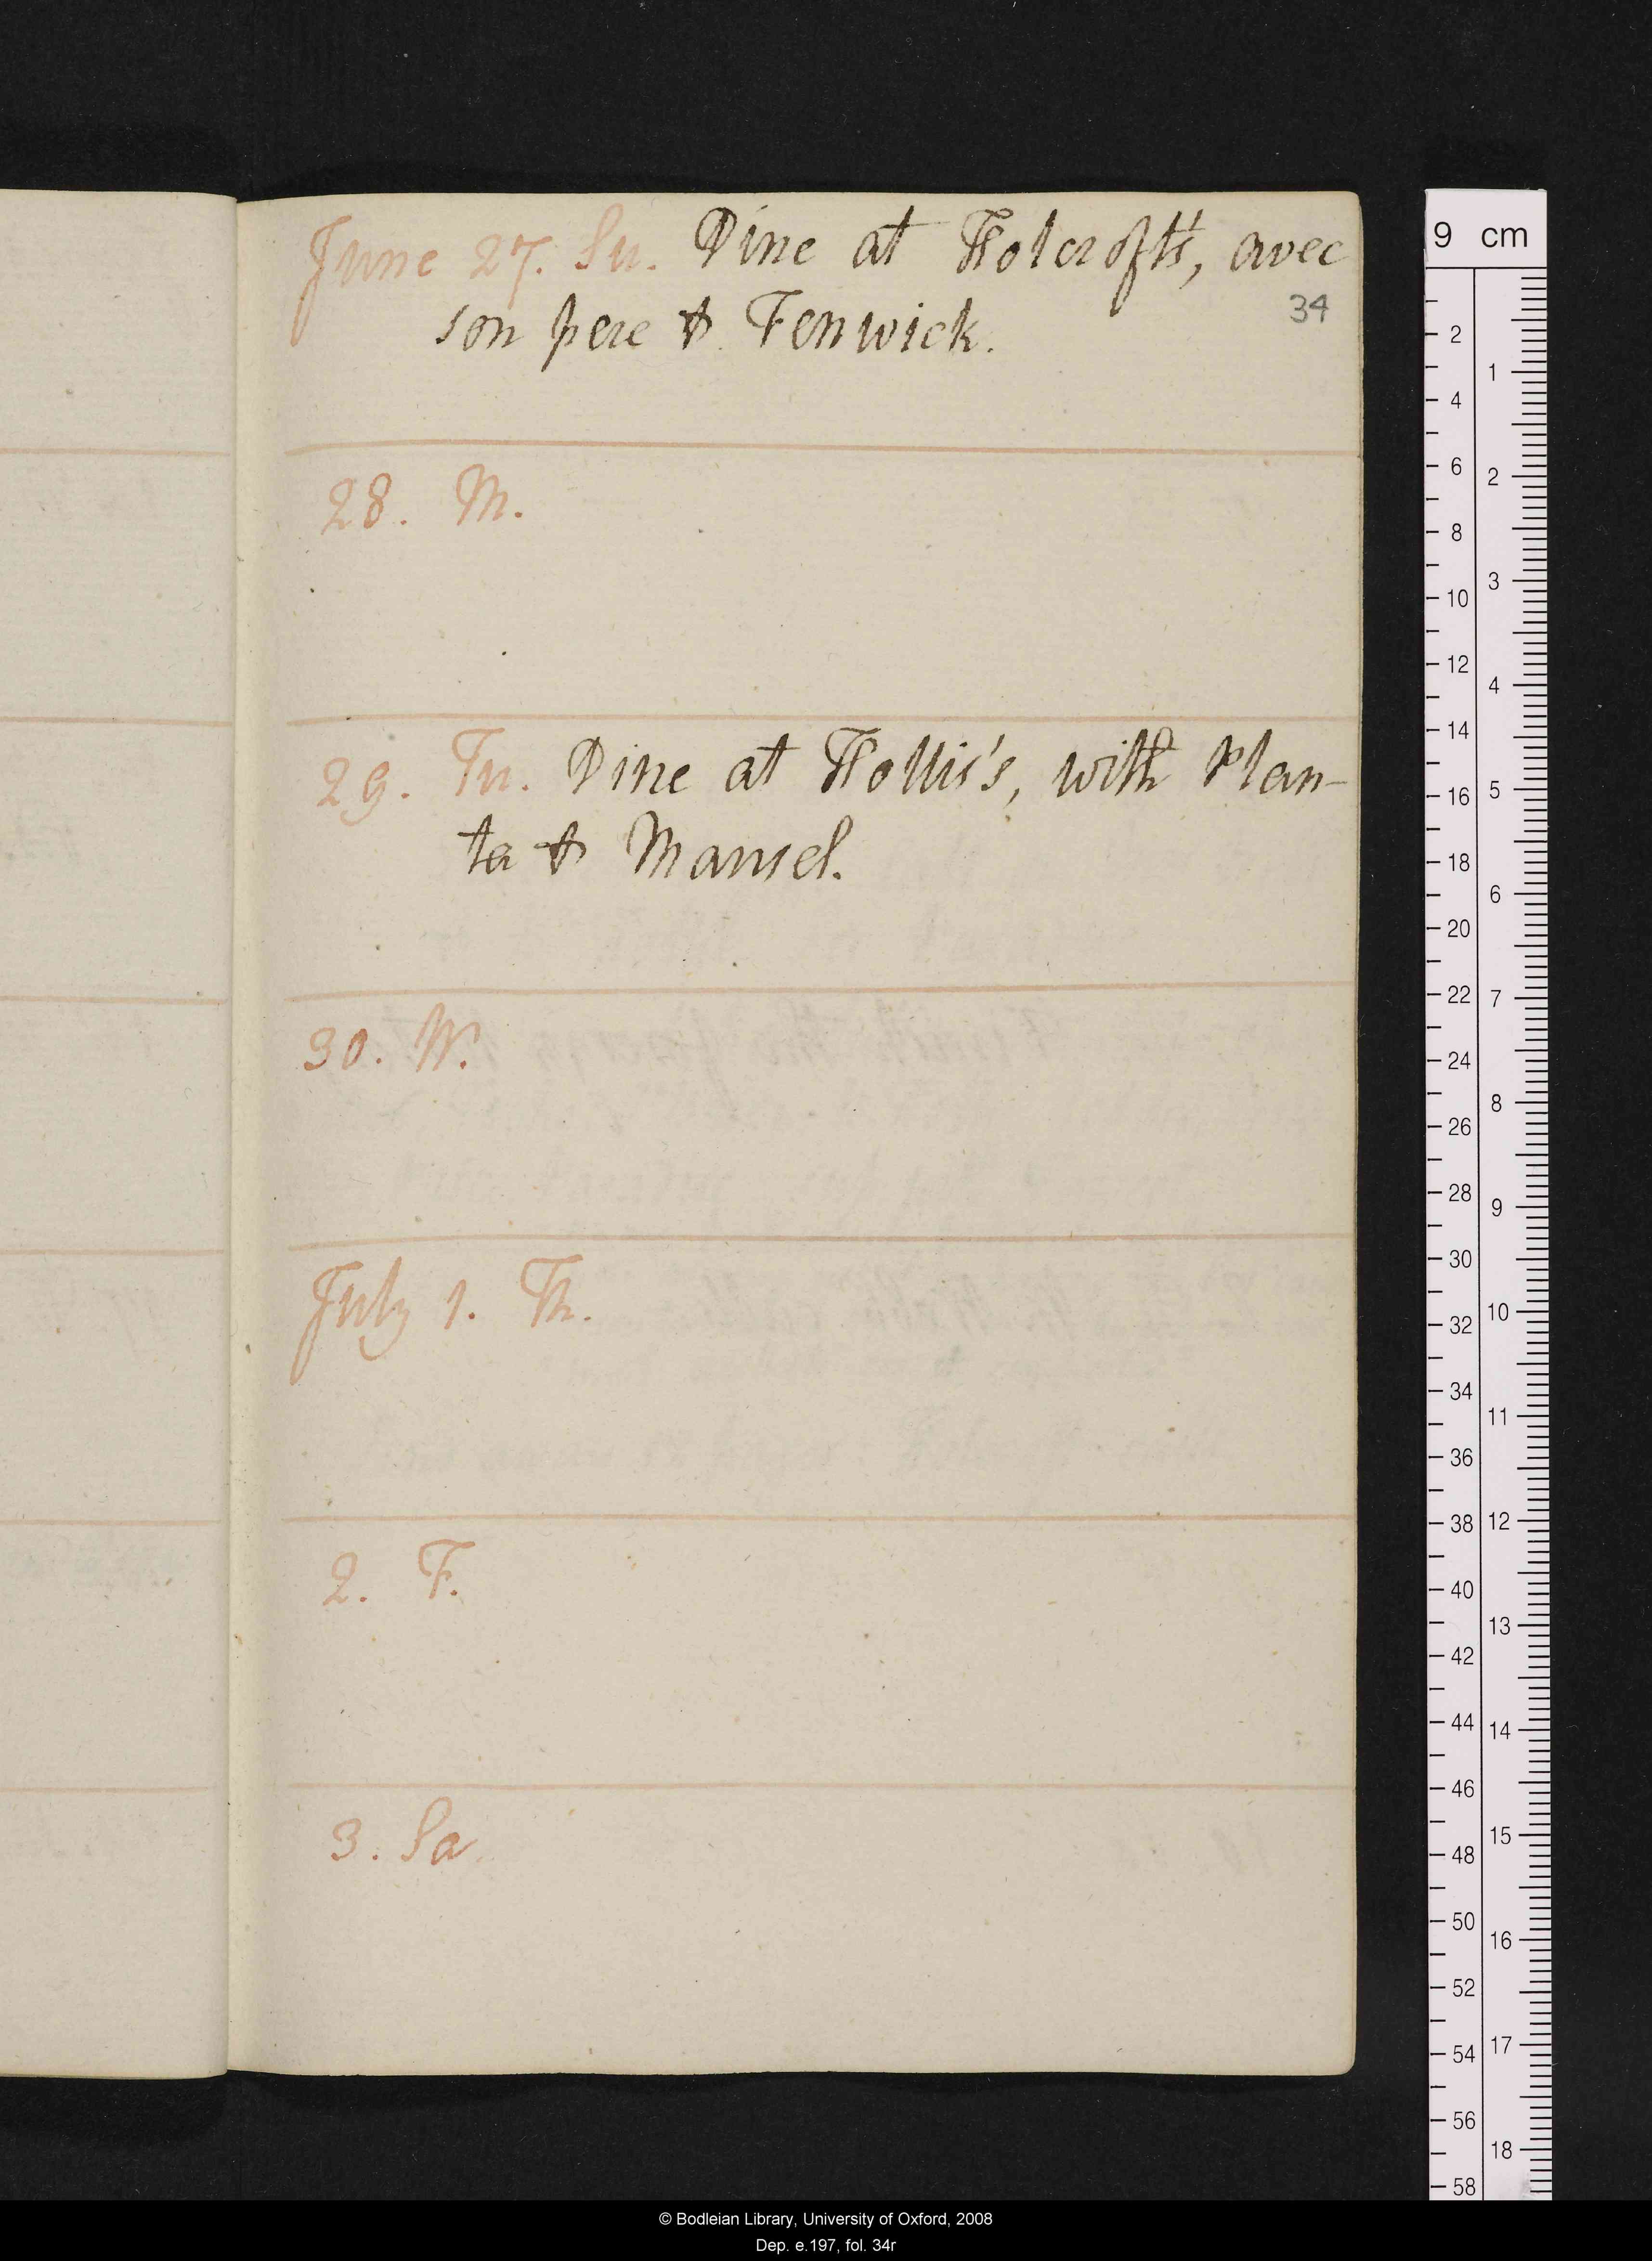 June 27. Su. Dine at Holcroft's, avec
34
son pere & Fenwick.
28. M.
29. Tu. Dine at Hollis's, with Plan-
ta & Mansel.
30. W.
July 1. Th.
2. F.
3. Sa
9 cm
2
4
6
8
10
12
14
16
18
20
22
24
26
28
30
32
34
36
38
40
42
44
46
48
50
52
54
56
58
1
2
3
4
5
6
7
8
9
10
11
12
13
14
15
16
17
18
© Bodleian Library, University of Oxford, 2008
Dep. e.197, fol. 34r